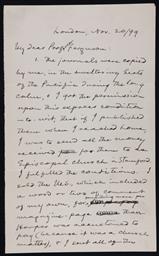 London, Nov. 20/99
My dear Prof. Ferguson:
1. The journals were copied
by me, in the sweltering seats
of the Pacific during the long
calm, & I got the permission
upon this express condition
—to wit, that if I published
them when I reached home,
I was to send all the money
received to an
Episcopal church in Stamford.
I fulfilled the conditions.
with the MS., which included
a word or two of comment
of my own, for
magazine-page than
Harper was accustomed to
pay (because it was a church
matter), & sent all of the